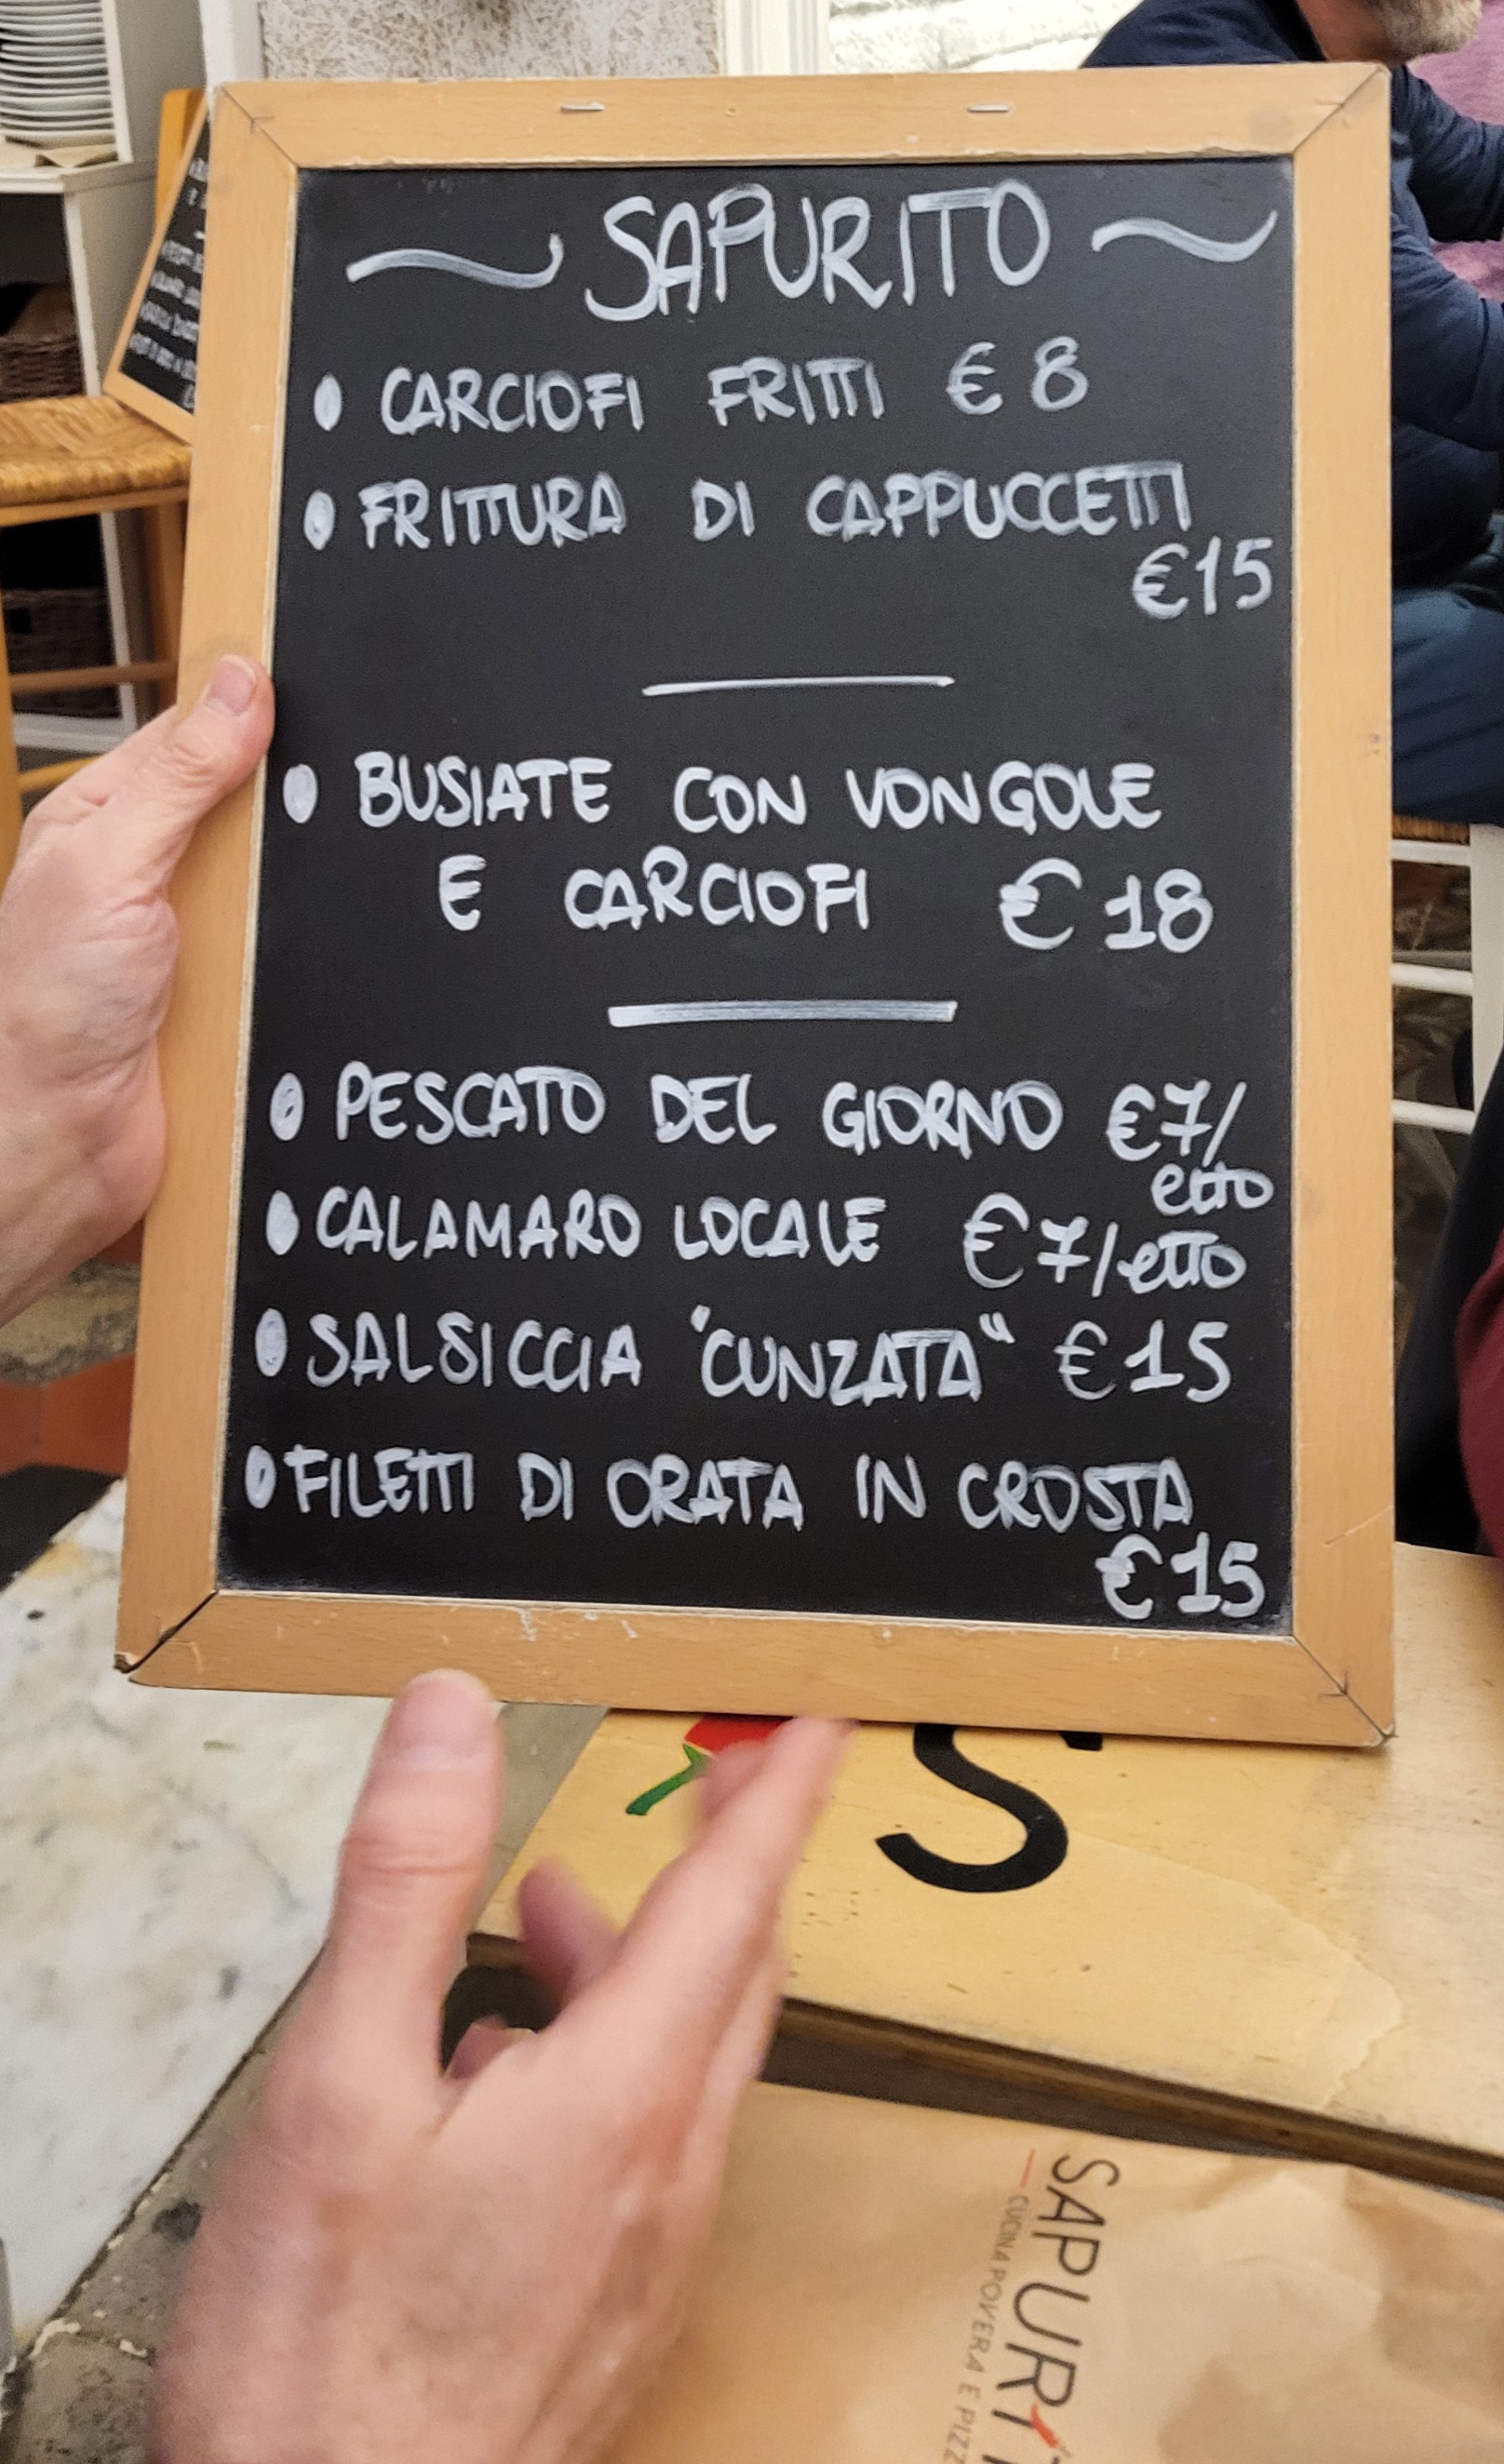 ~ SAPURITO ~
• CARCIOFI FRITTI € 8
• FRITTURA DI CAPPUCCETTI
€15
• BUSIATE CON VONGOLE
E CARCIOFI € 18
• PESCATO DEL GIORNO €7/
etto
• CALAMARO LOCALE €7/etto
• SALSICCIA "CUNZATA" €15
• FILETTI DI ORATA IN CROSTA
€15
S
SAPURIT
CUCINA POVERA E PIZZ